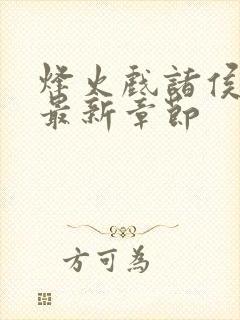 烽火戏諸侯
最新章節
方可為